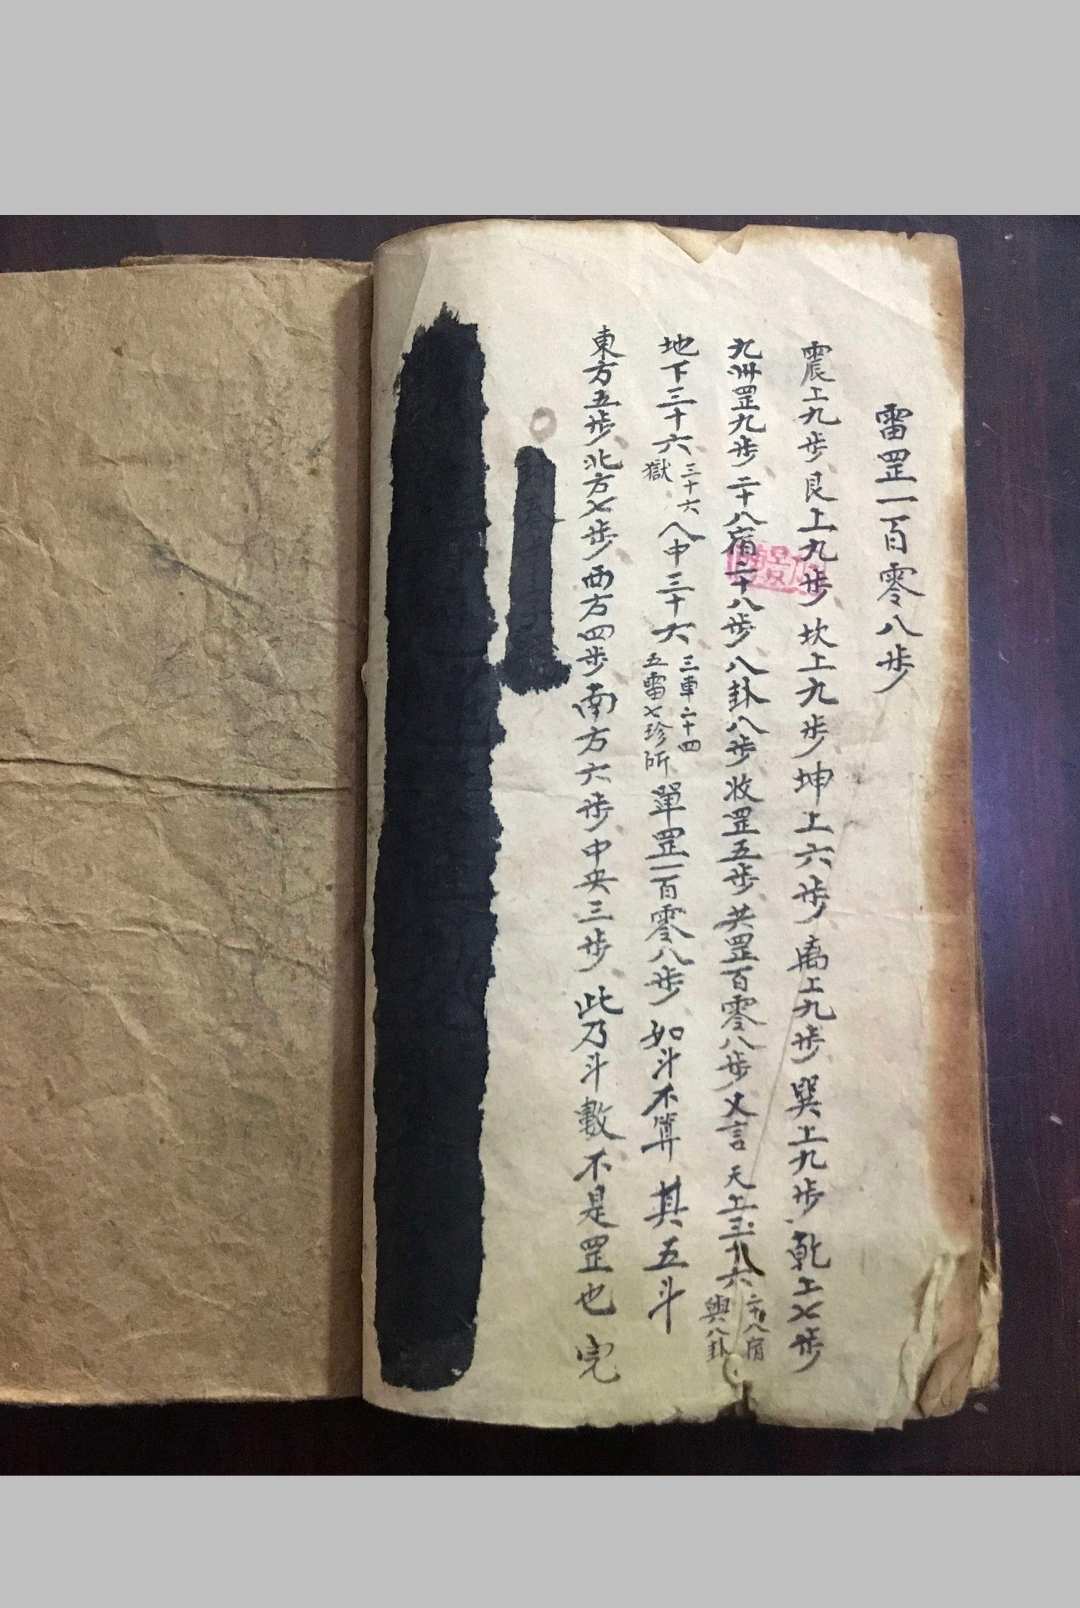 雷罡一百零八步
震上九步艮上九步坎上九步坤上六步离上九步巽上九步乾上七步
九州罡九步二十八宿二十八步八卦八步收罡五步共罡百零八步又言天上三十六二十八宿與八卦
地下三十六三十六獄人中三十六三車二十四五雷七珍所單罡一百零八步如斗不算其五斗
東方五步北方七步西方四步南方六步中央三步此乃斗數不是罡也完